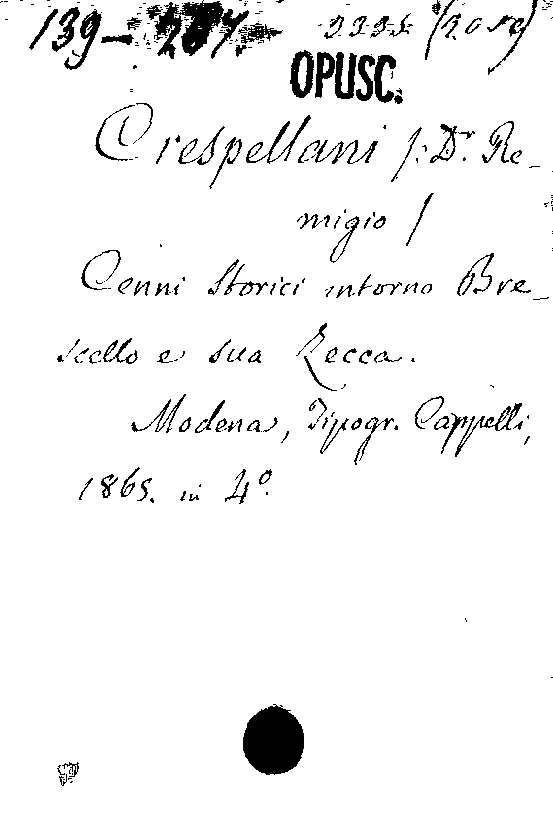 139-
OPUSC.
Crespellani /: Dr. Re-
migio /
Cenni storici intorno Bre-
scello e sua Zecca.
Modena, Tipogr. Cappelli,
1865. in 4º.